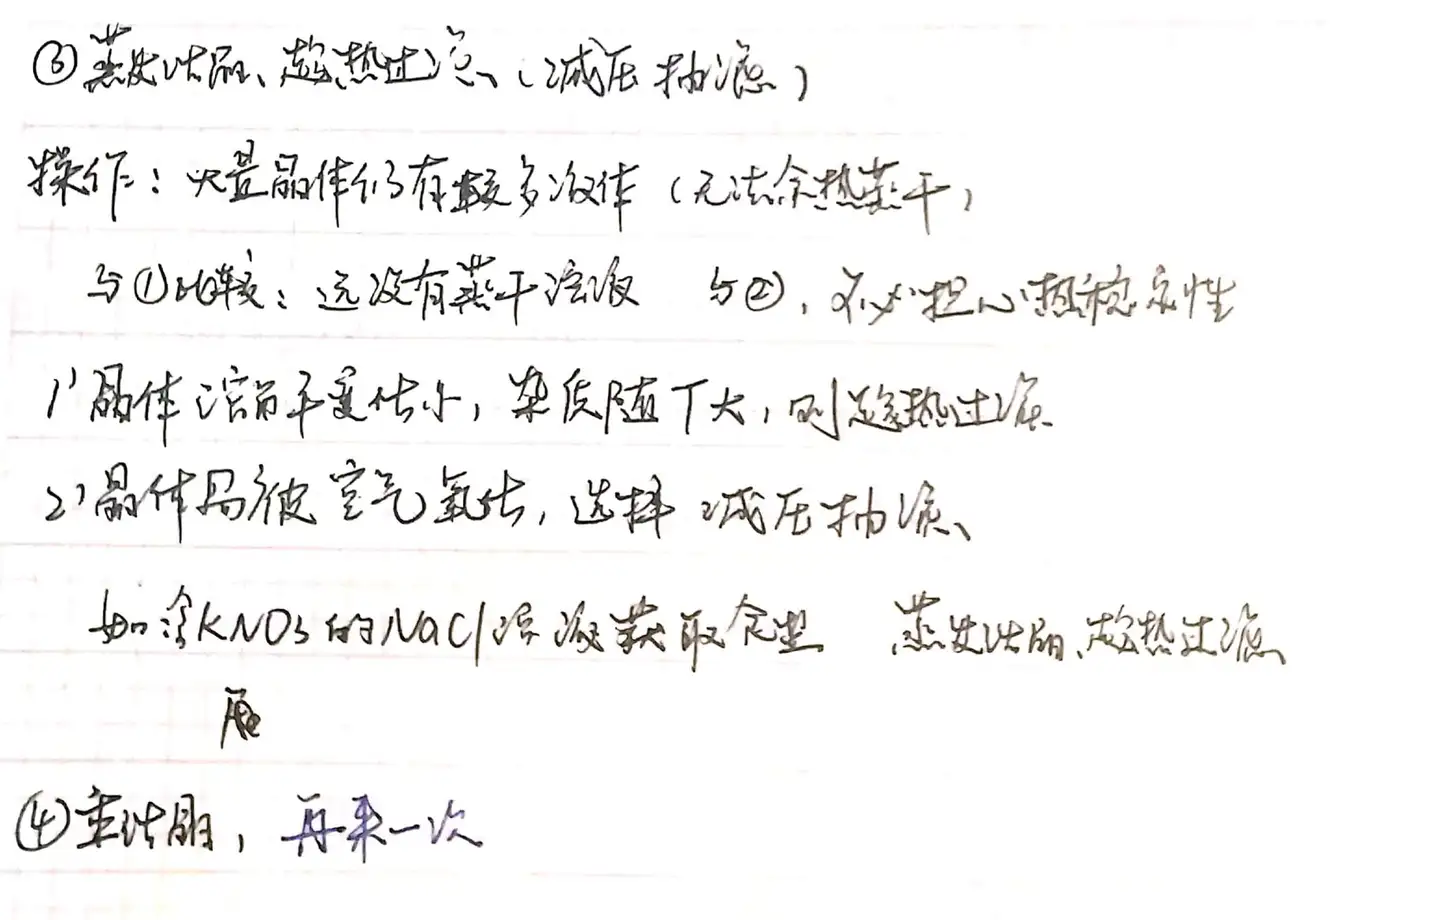 ③蒸发结晶、趁热过滤（减压抽滤）
操作：大量晶体仍有较多液体（无法余热蒸干）
与①比较：远没有蒸干溶液 与②，不必担心热稳定性
1'晶体溶解平变化小，杂质随T大，则趁热过滤
2'晶体易被空气氧化，选择减压抽滤
如含KNO3的NaCl溶液获取食盐 蒸发结晶、趁热过滤
④重结晶，再来一次